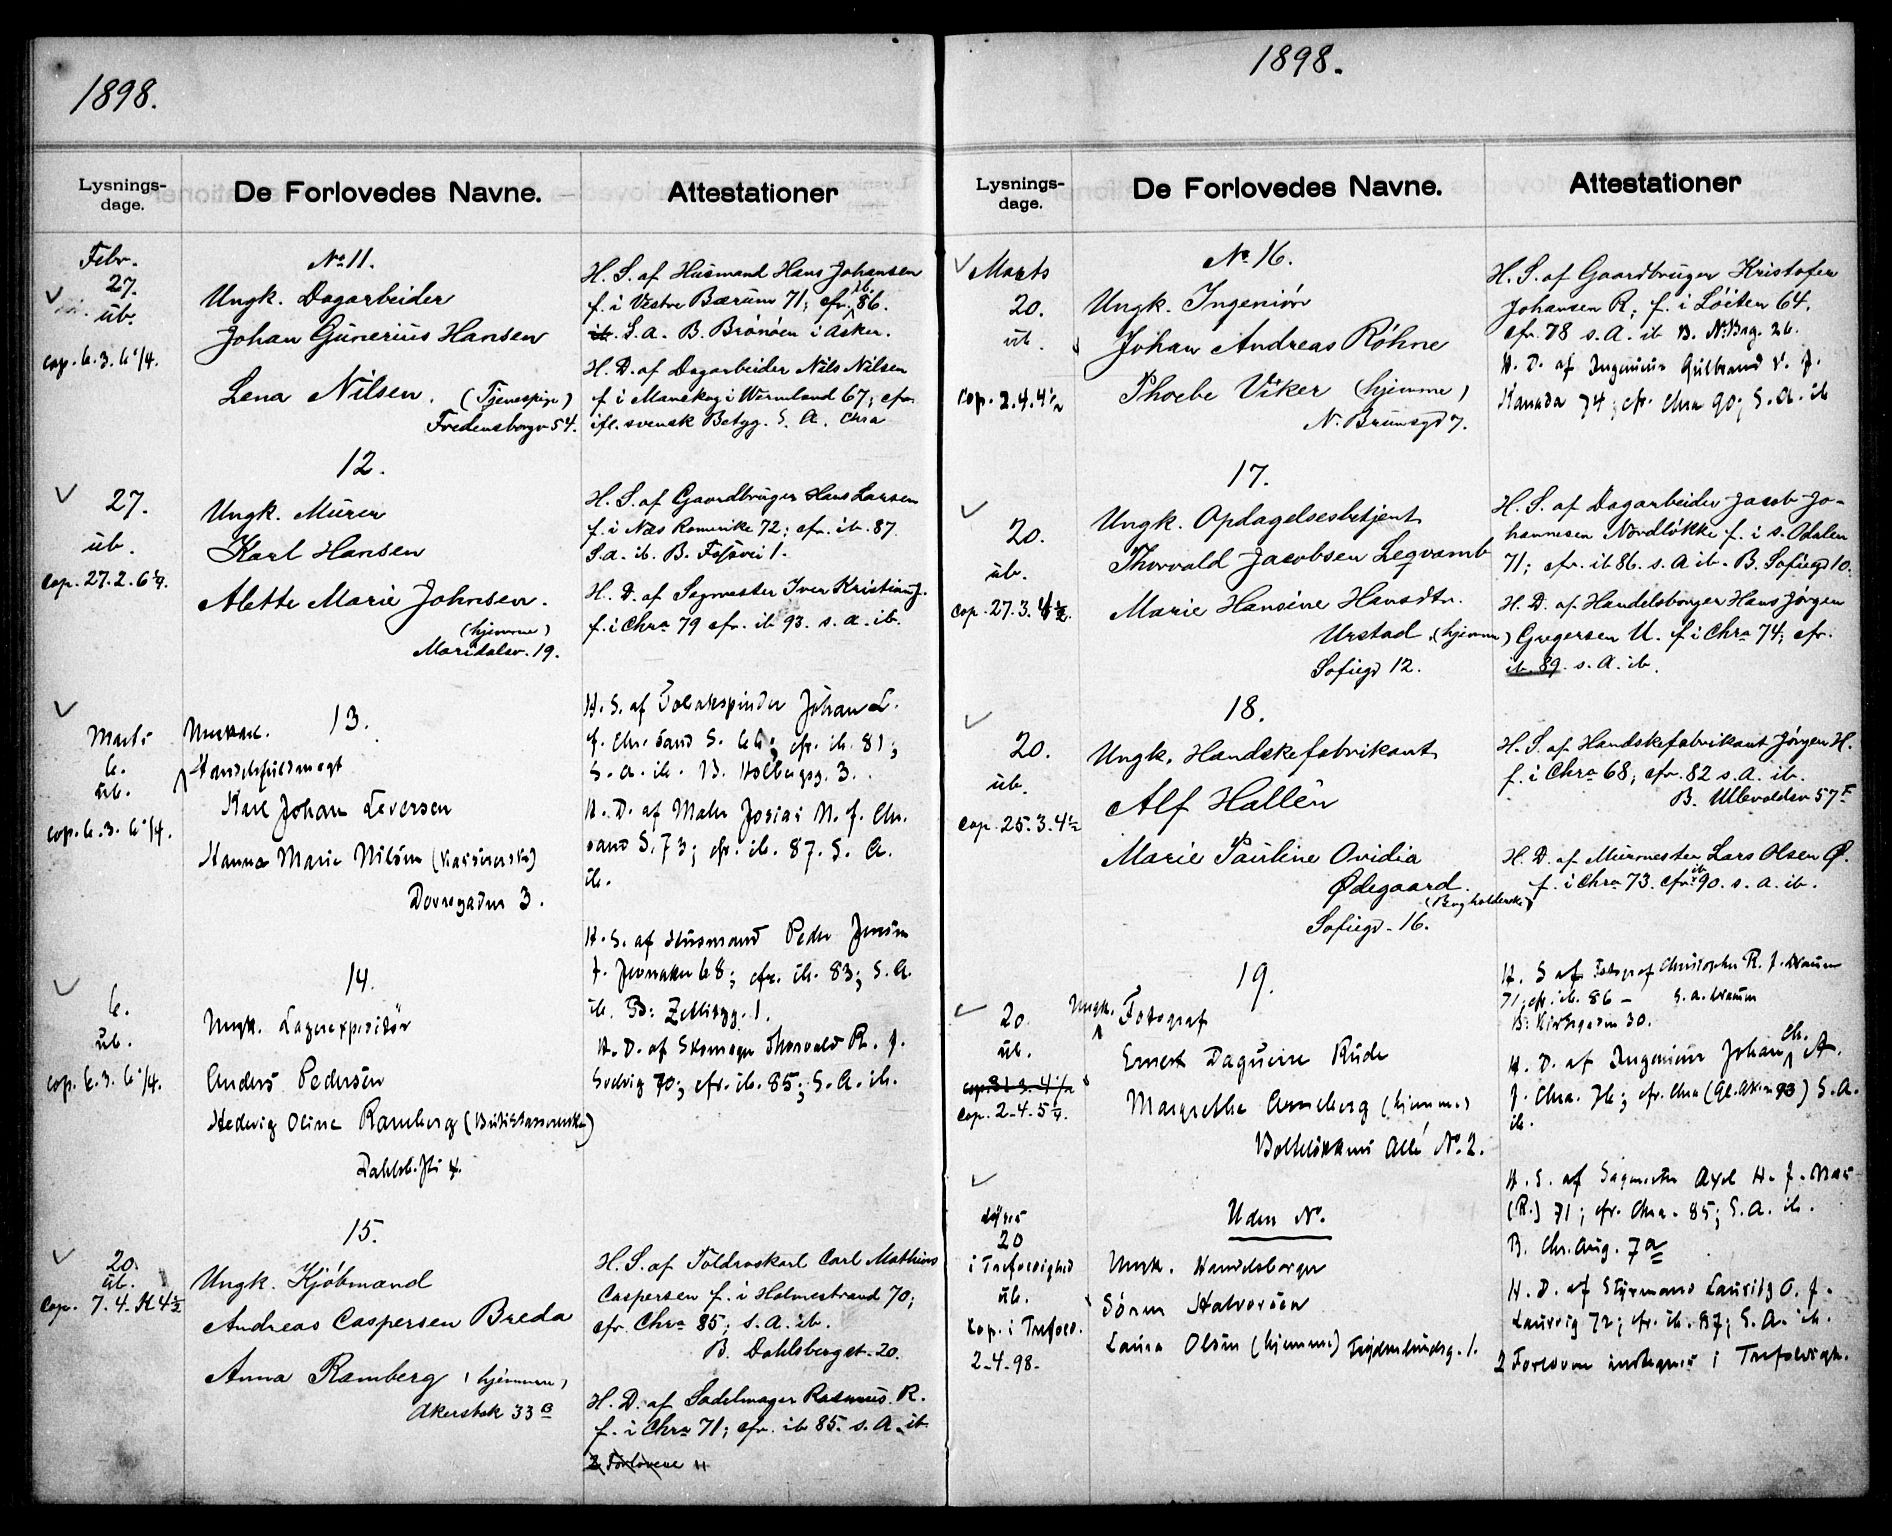 1898.
Lysnings-
dage.
De Forlovedes Navne.
Attestationer
Febr.
27.
üb.
cop. 6.3. 6 1/4.
No 11.
Ungk. Dagarbeider
Johan Gunerius Hansen
Lena Nilsen. (Tjenespige)
Fredensborgv 54.
H. S. af Husmand Hans Johansen
f. i Vestre Bærum 71; cfr. ib. 86.
S. A. B. Brönöen i Asker.
H. D. af Dagarbeider Nils Nilsen
f. i Manskog i Wermland 67; cfr.
ifl. svensk Betyg. S. A. Chra
27.
üb.
cop. 27.2. 6 1/4.
12.
Ungk. Murer
Karl Hansen
Alette Marie Johnsen.
(hjemme)
Maridalsv. 19.
H. S. af Gaardbruger Hans Larsen
f. i Næs Romerike 72; cfr. ib. 87.
S. A. ib. B. Fossvei 1.
H. D. af Sagmester Iver Kristian J.
f. i Chra 79 cfr. ib. 93. s. a. ib.
Marts
6.
üb.
cop. 6.3. 6 1/4.
13.
Ungkarl.
Handelsfuldmægt
Karl Johan Leversen
Hanna Marie Nilsen (Kassererske)
Dovregaden 3.
H. S. af Tobakspinder Johan L.
f. Chr.sand S. 66; cfr. ib. 81;
S. A. ib. B. Holbergsg. 3.
H. D. af Maler Josias N. f. Chr.
sand S. 73; cfr. ib. 87. S. A.
ib.
6.
üb.
cop. 6.3. 6 1/4.
14.
Ungk. Lagerexpeditör
Anders Pedersen
Hedevig Oline Ramberg (Butikkassererske)
Dahlsb.sti 4.
H. S. af Husmand Peder Jensen
f. Jevnaker 68; cfr. ib. 83; S. A.
ib. B: Zetlitzg. 1.
H. D. af Skomager Thorvald R. f.
Lodvig 70; cfr. ib. 85; S. A. ib.
20.
üb.
Cop. 7.4. K 4 1/2
15.
Ungk. Kjöbmand
Andreas Caspersen Breda
Anna Ramberg (hjemme)
Akersbak 33 B
H. S. af Toldroskarl Carl Mathias
Caspersen f. i Holmestrand 70;
cfr Chra 85; S. A. ib.
B. Dahlsbergst. 20.
H. D. af Sadelmager Rasmus R.
f. i Chra 71; cfr. ib 85. s. A. ib
2 Forlovere
1898.
Lysnings-
dage.
De Forlovedes Navne.
Attestationer
Marts
20.
üb.
cop. 2.4. 4 1/2
No 16.
Ungk. Ingeniör
Johan Andreas Röhne
Phoebe Viker (hjemme)
N. Brunsgd 7.
H. S. af Gaardbruger Kristofer
Johansen R; f. i Löiten 64.
cfr. 78 s. A. ib B. N. Brg. 26.
H. D. af Ingeniør Gulbrand V. f.
Kanada 74; cfr. Chra 90; S. A. ib
20.
üb.
cop. 27.3. 4 1/2.
17.
Ungk. Opdagelsesbetjent
Thorvald Jacobsen Legvamb
Marie Hansine Hansdtr.
Urstad (hjemme)
Sofiegd 12.
H. S. af Dagarbeider Jacob Jo-
hannesen Nordløkke f. i S. Odalen
71; cfr. ib 86. s. A. ib. B. Sofiegd 10.
H. D. af Handelsborger Hans Jörgen
Gregersen U. f. i Chra 74; cfr.
ib. 89. s. A. ib.
20.
üb.
cop. 25.3. 4 1/2
18.
Ungk. Handskefabrikant
Alf Hallén
Marie Pauline Ovidia
Ødegaard.
(Bogholderske)
Sofiegd. 16.
H. S. af Handskefabrikant Jörgen H.
f. i Chra 68; cfr. 82 s. A. ib.
B. Ullevoldsv 57 F
H. D. af Murmester Lars Olsen Ø.
f. i Chra 73. cfr. ib 90. s. a. ib.
20.
üb.
cop. 31.3. 4 1/2
cop. 2.4. 5 1/4.
19.
Ungk. Fotograf
Ernest Daguerre Rude
Margrethe Arneberg (hjemme)
Bolteløkkens Allé No. 2.
H. S af Fotograf Christopher R. f. Dramm
71; cfr. ib. 86 – S. a. Dramm
B: Kirkegaden 30.
H. D. af Ingeniør Johan Chr. A.
f. Chra. 76; cfr. Chra (Gl. Aker 93) S. A.
ib.
Lyses
20
i Trefoldighed
üb.
Cop. i Trefold.
2-4-98-
Uden No.
Ungk. Handelsborger
Sören Halvorsen
Laura Olsen (hjemme) Frydenlundsg. 1.
H. S. af Sagmester Axel H. f. Næs
(R.) 71; cfr. Chra. 85; S. A. ib.
B. Chr. Aug. 7 a
H. D. af Styrmand Lauritz O. f.
Laurvig 72; cfr. ib. 87; S. A. ib.
2 Forlovere indtegnes i Trefoldigh.